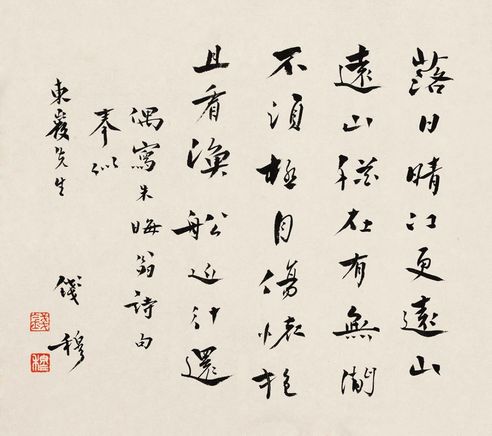 落日晴江更遠山
遠山在有無間
不須極目傷懷抱
且看漁船近計還
偶寫朱晦翁詩句
奉似
東先生
錢穆
錢
穆